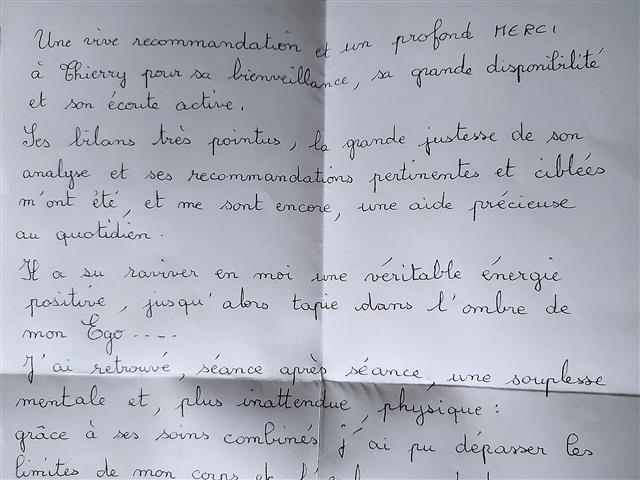 Une vive recommandation et un profond MERCI
à Thierry pour sa bienveillance, sa grande disponibilité
et son écoute active.
Ses bilans très pointus, la grande justesse de son
analyse et ses recommandations pertinentes et ciblées
m'ont été, et me sont encore, une aide précieuse
au quotidien.
Il a su raviver en moi une véritable énergie
positive, jusqu'alors tapie dans l'ombre de
mon Ego ....
J'ai retrouvé, séance après séance, une souplesse
mentale et, plus inattendue, physique :
grâce à ses soins combinés j'ai pu dépasser les
limites de mon corps et